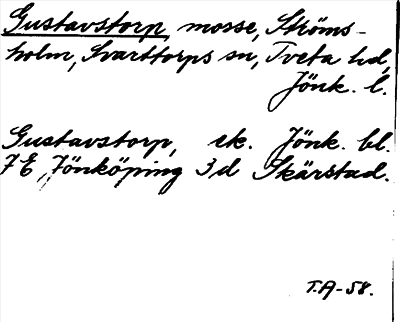 Gustavstorp, mosse, Ströms-
holm, Svarttorps sn, Tveta hd,
Jönk. l.
Gustavstorp, ek. Jönk. bl.
7E, Jönköping 3d Skärstad.
T.A-58.